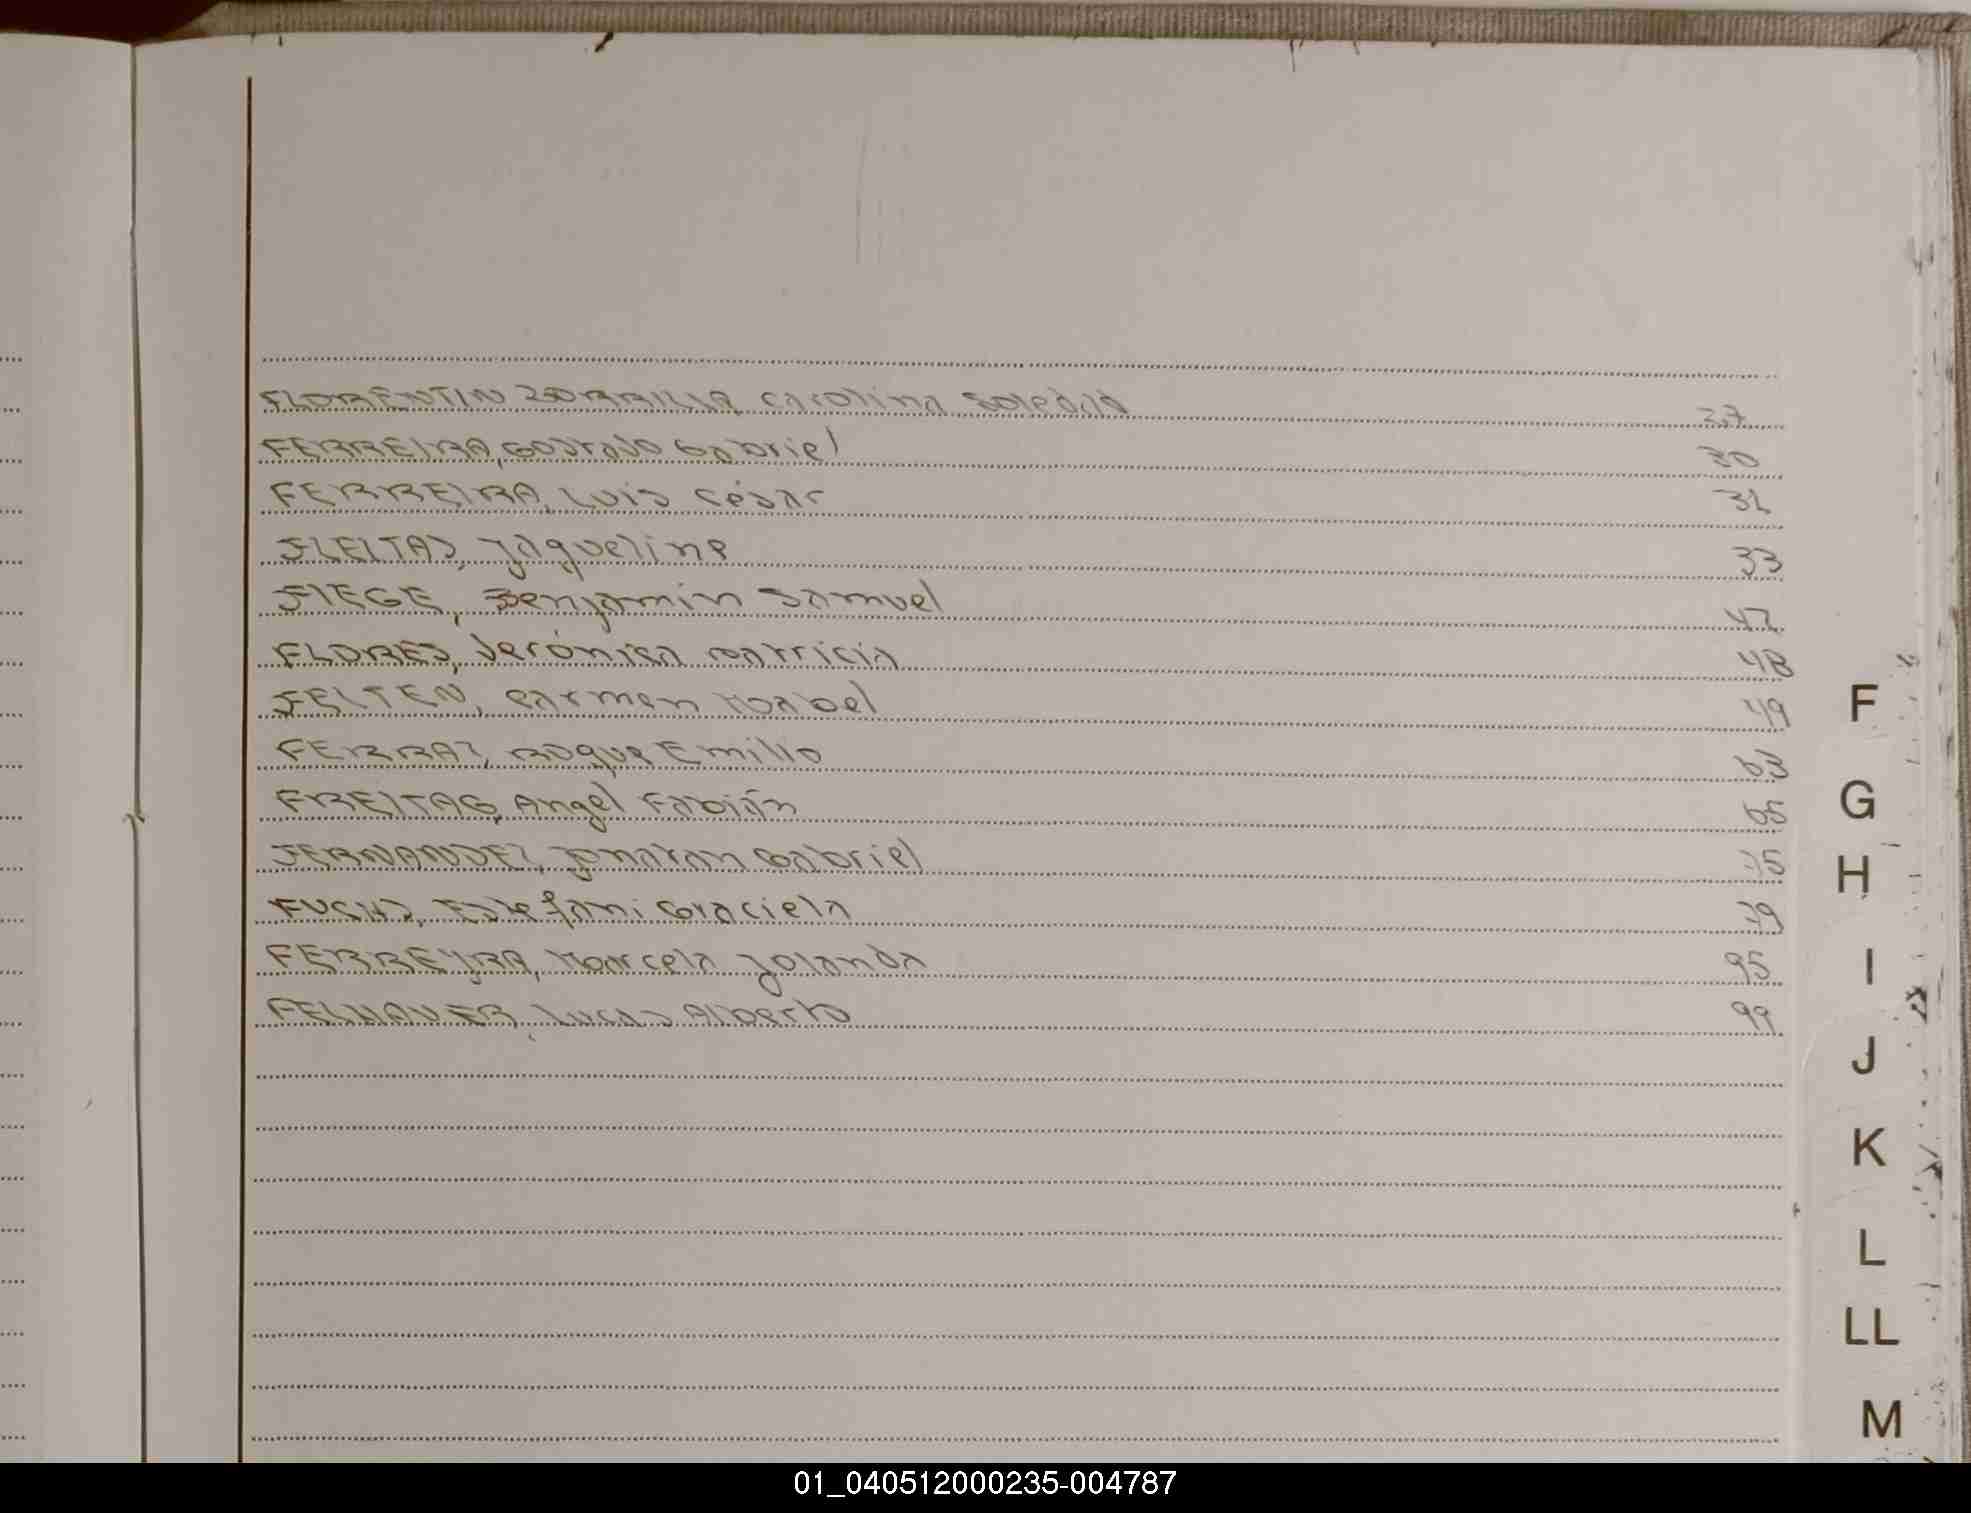 FLORENTIN ZORRILLA, Carolina Soledad 27
FERREIRA, Gustavo Gabriel 30
FERREIRA, Luis César 31
FLEITAS, Jaqueline 33
FIEGE, Benjamin Samuel 47
FLORES, Verónica Patricia 48
FELTEN, Carmen Isabel 49
FERRAZ, Roque Emilio 63
FREITAG, Angel Fabián 65
FERNANDEZ, Jonatan Gabriel 75
FUCHS, Estefani Graciela 79
FERREYRA, Marcela Yolanda 95
Lucas Alberto 99
F
G
H
I
J
K
L
LL
M
01_040512000235-004787